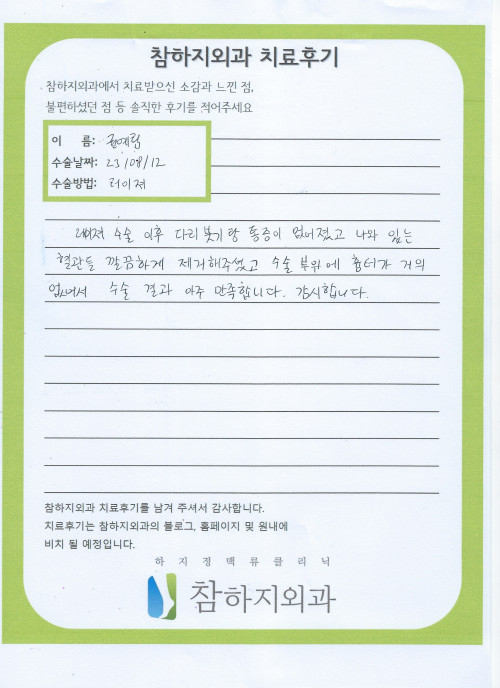 참하지외과 치료후기
참하지외과에서 치료받으신 소감과 느낀 점,
불편하셨던 점 등 솔직한 후기를 적어주세요
이 름:
수술날짜: 23/08/12
수술방법: 레이저
레이저 수술 이후 다리 붓기랑 통증이 없어졌고 나와 있는
혈관들 깔끔하게 제거해주셨고 수술 부위에 흉터가 거의
없어서 수술 결과 아주 만족합니다. 감사합니다.
참하지외과 치료후기를 남겨 주셔서 감사합니다.
치료후기는 참하지외과의 블로그, 홈페이지 및 원내에
비치 될 예정입니다.
하지정맥류클리닉
참하지외과